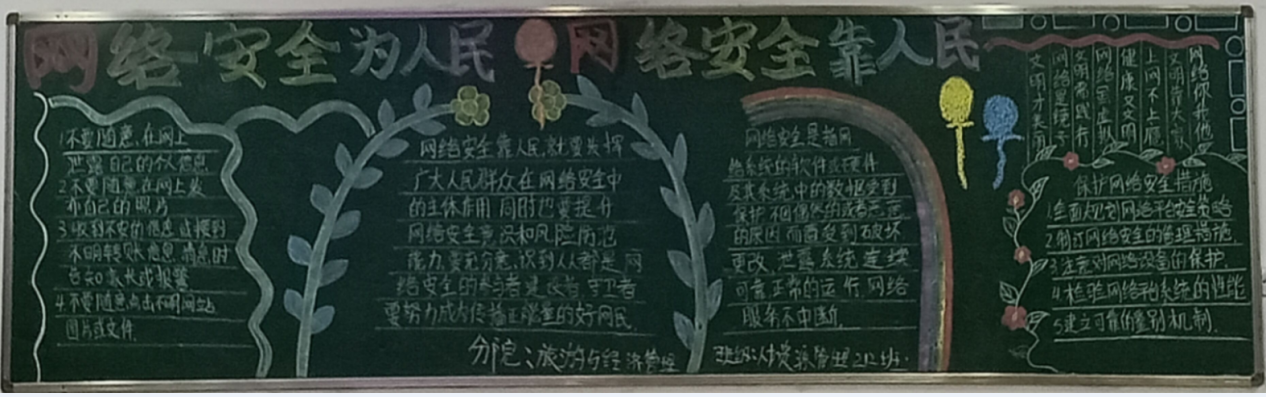 网络安全为人民 网络安全靠人民
1.不要随意在网上
泄露自己的个人信息
2.不要随意在网上发
布自己的照片
3.收到不安的信息或接到
不明转账信息消息时
告知家长或报警
4.不要随意点击不明网站
图片或文件
网络安全靠人民,就要发挥
广大人民群众在网络安全中
的主体作用 同时也要提升
网络安全意识和风险防范
能力 要充分意识到人人都是网
络安全的参与者 建设者 守卫者
要努力成为传播正能量的好网民
分院:旅游与经济管理
网络安全是指网
络系统的软件或硬件
及其系统中的数据受到
保护 不因偶然的或者恶意
的原因而遭受到破坏
更改、泄露系统连续
可靠正常的运行,网络
服务不中断.
网络你我他
文明靠大家
上网不上瘾
健康又文明
保护网络安全措施
1.全面规划网络平台的安全策略
2.制订网络安全的管理措施
3.注意对网络设备的保护
4.检验网络平台系统的性能
5.建立可靠的鉴别机制.